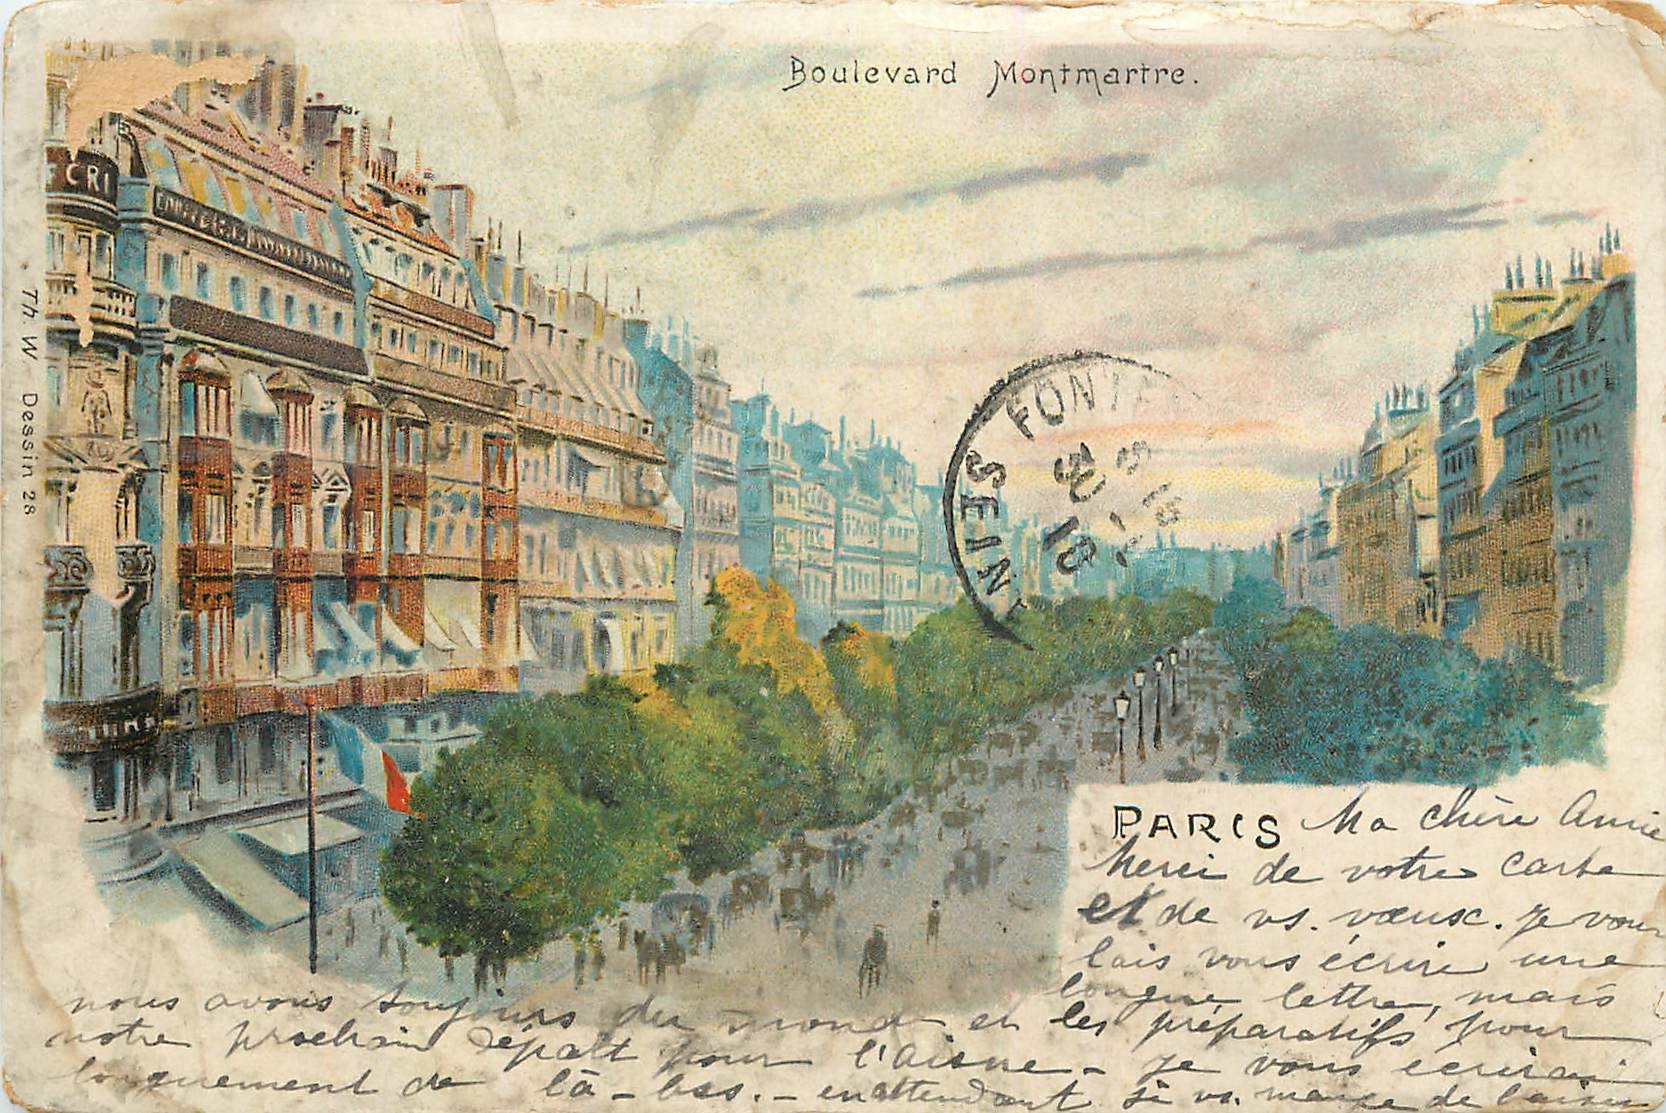 Boulevard Montmartre.
CRI
Th. W. Dessin 28
FONTE
SEINE
30
18
PARIS
Ma chère Amie
Merci de votre carte
et de vs. vœux. Je vou
lais vous écrire une
longue lettre, mais
nous avons toujours du monde et les préparatifs pour
notre prochain départ pour l'aisne - Je vous écrirai
longuement de là-bas. - en attendant si vs. manque de